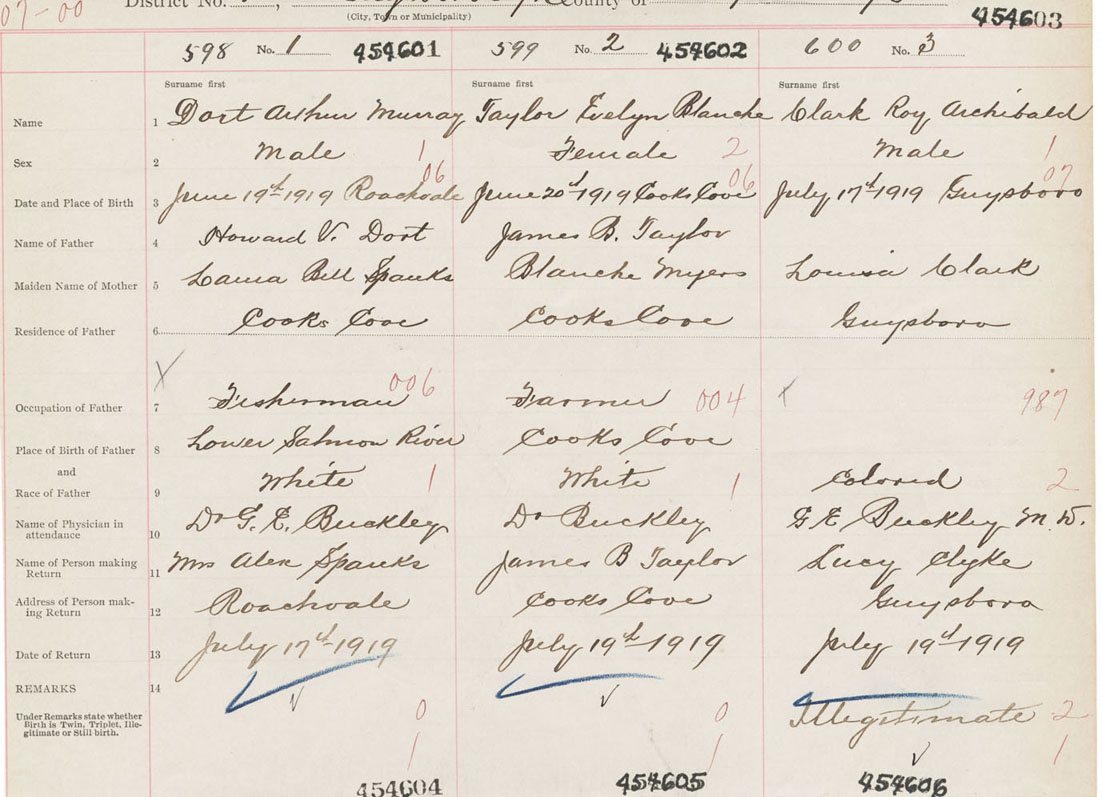 District No. County of
(City, Town or Municipality)
07-00 454603
598 No. 1 454601 599 No. 2 454602 600 No. 3
Surname first Surname first Surname first
Name 1 Dort Arthur Murray Taylor Evelyn Blanche Clark Roy Archibald
Sex 2 Male 1 Female 2 Male 1
06 06 07
Date and Place of Birth 3 June 19th 1919 Roachvale June 20th 1919 Cooks Cove July 17th 1919 Guysboro
Name of Father 4 Howard V. Dort James B. Taylor
Maiden Name of Mother 5 Laura Bell Spanks Blanche Myers Louisa Clark
Residence of Father 6 Cooks Cove Cooks Cove Guysboro
Occupation of Father 7 Fisherman 006 Farmer 004 987
Place of Birth of Father 8 Lower Salmon River Cooks Cove
and
Race of Father 9 White 1 White 1 Colored 2
Name of Physician in
attendance 10 Dr G. E. Buckley Dr Buckley G E Buckley M.D.
Name of Person making
Return 11 Mrs Alex Spanks James B Taylor Lucy Clyke
Address of Person mak-
ing Return 12 Roachvale Cooks Cove Guysboro
Date of Return 13 July 17th 1919 July 19th 1919 July 19th 1919
REMARKS 14
Under Remarks state whether
Birth is Twin, Triplet, Ille-
gitimate or Still birth.
0 0 Illegitimate 2
1 1 1
454604 454605 454606